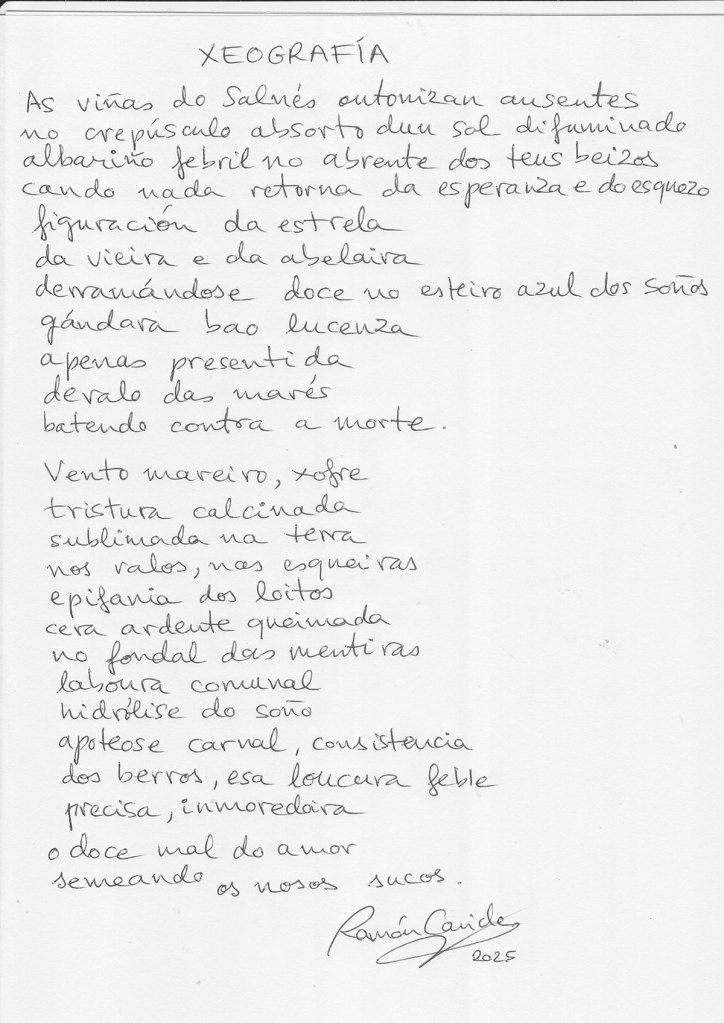 XEOGRAFÍA
As viñas do Salnés outonizan ausentes
no crepúsculo absorto dun sol difuminado
albariño febril no abrente dos teus beizos
cando nada retorna da esperanza e do esquezo
figuración da estrela
da vieira e da abelaira
derramándose doce no esteiro azul dos soños
gándara bao lucenza
apenas presentida
devalo das marés
batendo contra a morte.
Vento mareiro, xofre
tristura calcinada
sublimada na terra
nos valos, nas esqueiras
epifanía dos loitos
cera ardente queimada
no fondal das mentiras
laboura comunal
hidrólise do soño
apoteose carnal, consistencia
dos berros, esa loucura feble
precisa, inmoredoira
o doce mal do amor
semeando os nosos sucos.
Ramón Caride
2025